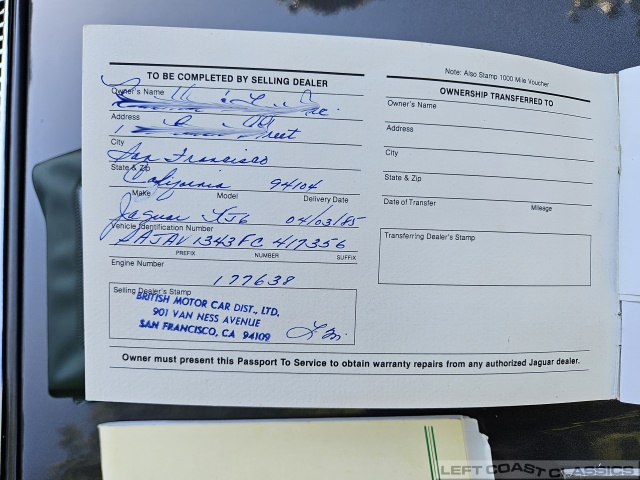 TO BE COMPLETED BY SELLING DEALER
Owner's Name
Inc.
Address
City
San Francisco
State & Zip
California 94104
Make Model Delivery Date
Jaguar XJ6 04/03/85
Vehicle Identification Number
SAJAV1343FC 417356
PREFIX NUMBER SUFFIX
Engine Number
177638
Selling Dealer's Stamp
BRITISH MOTOR CAR DIST., LTD.
901 VAN NESS AVENUE
SAN FRANCISCO, CA 94109
Note: Also Stamp 1000 Mile Voucher
OWNERSHIP TRANSFERRED TO
Owner's Name
Address
City
State & Zip
Date of Transfer Mileage
Transferring Dealer's Stamp
Owner must present this Passport To Service to obtain warranty repairs from any authorized Jaguar dealer.
LEFT COAST CLASSICS